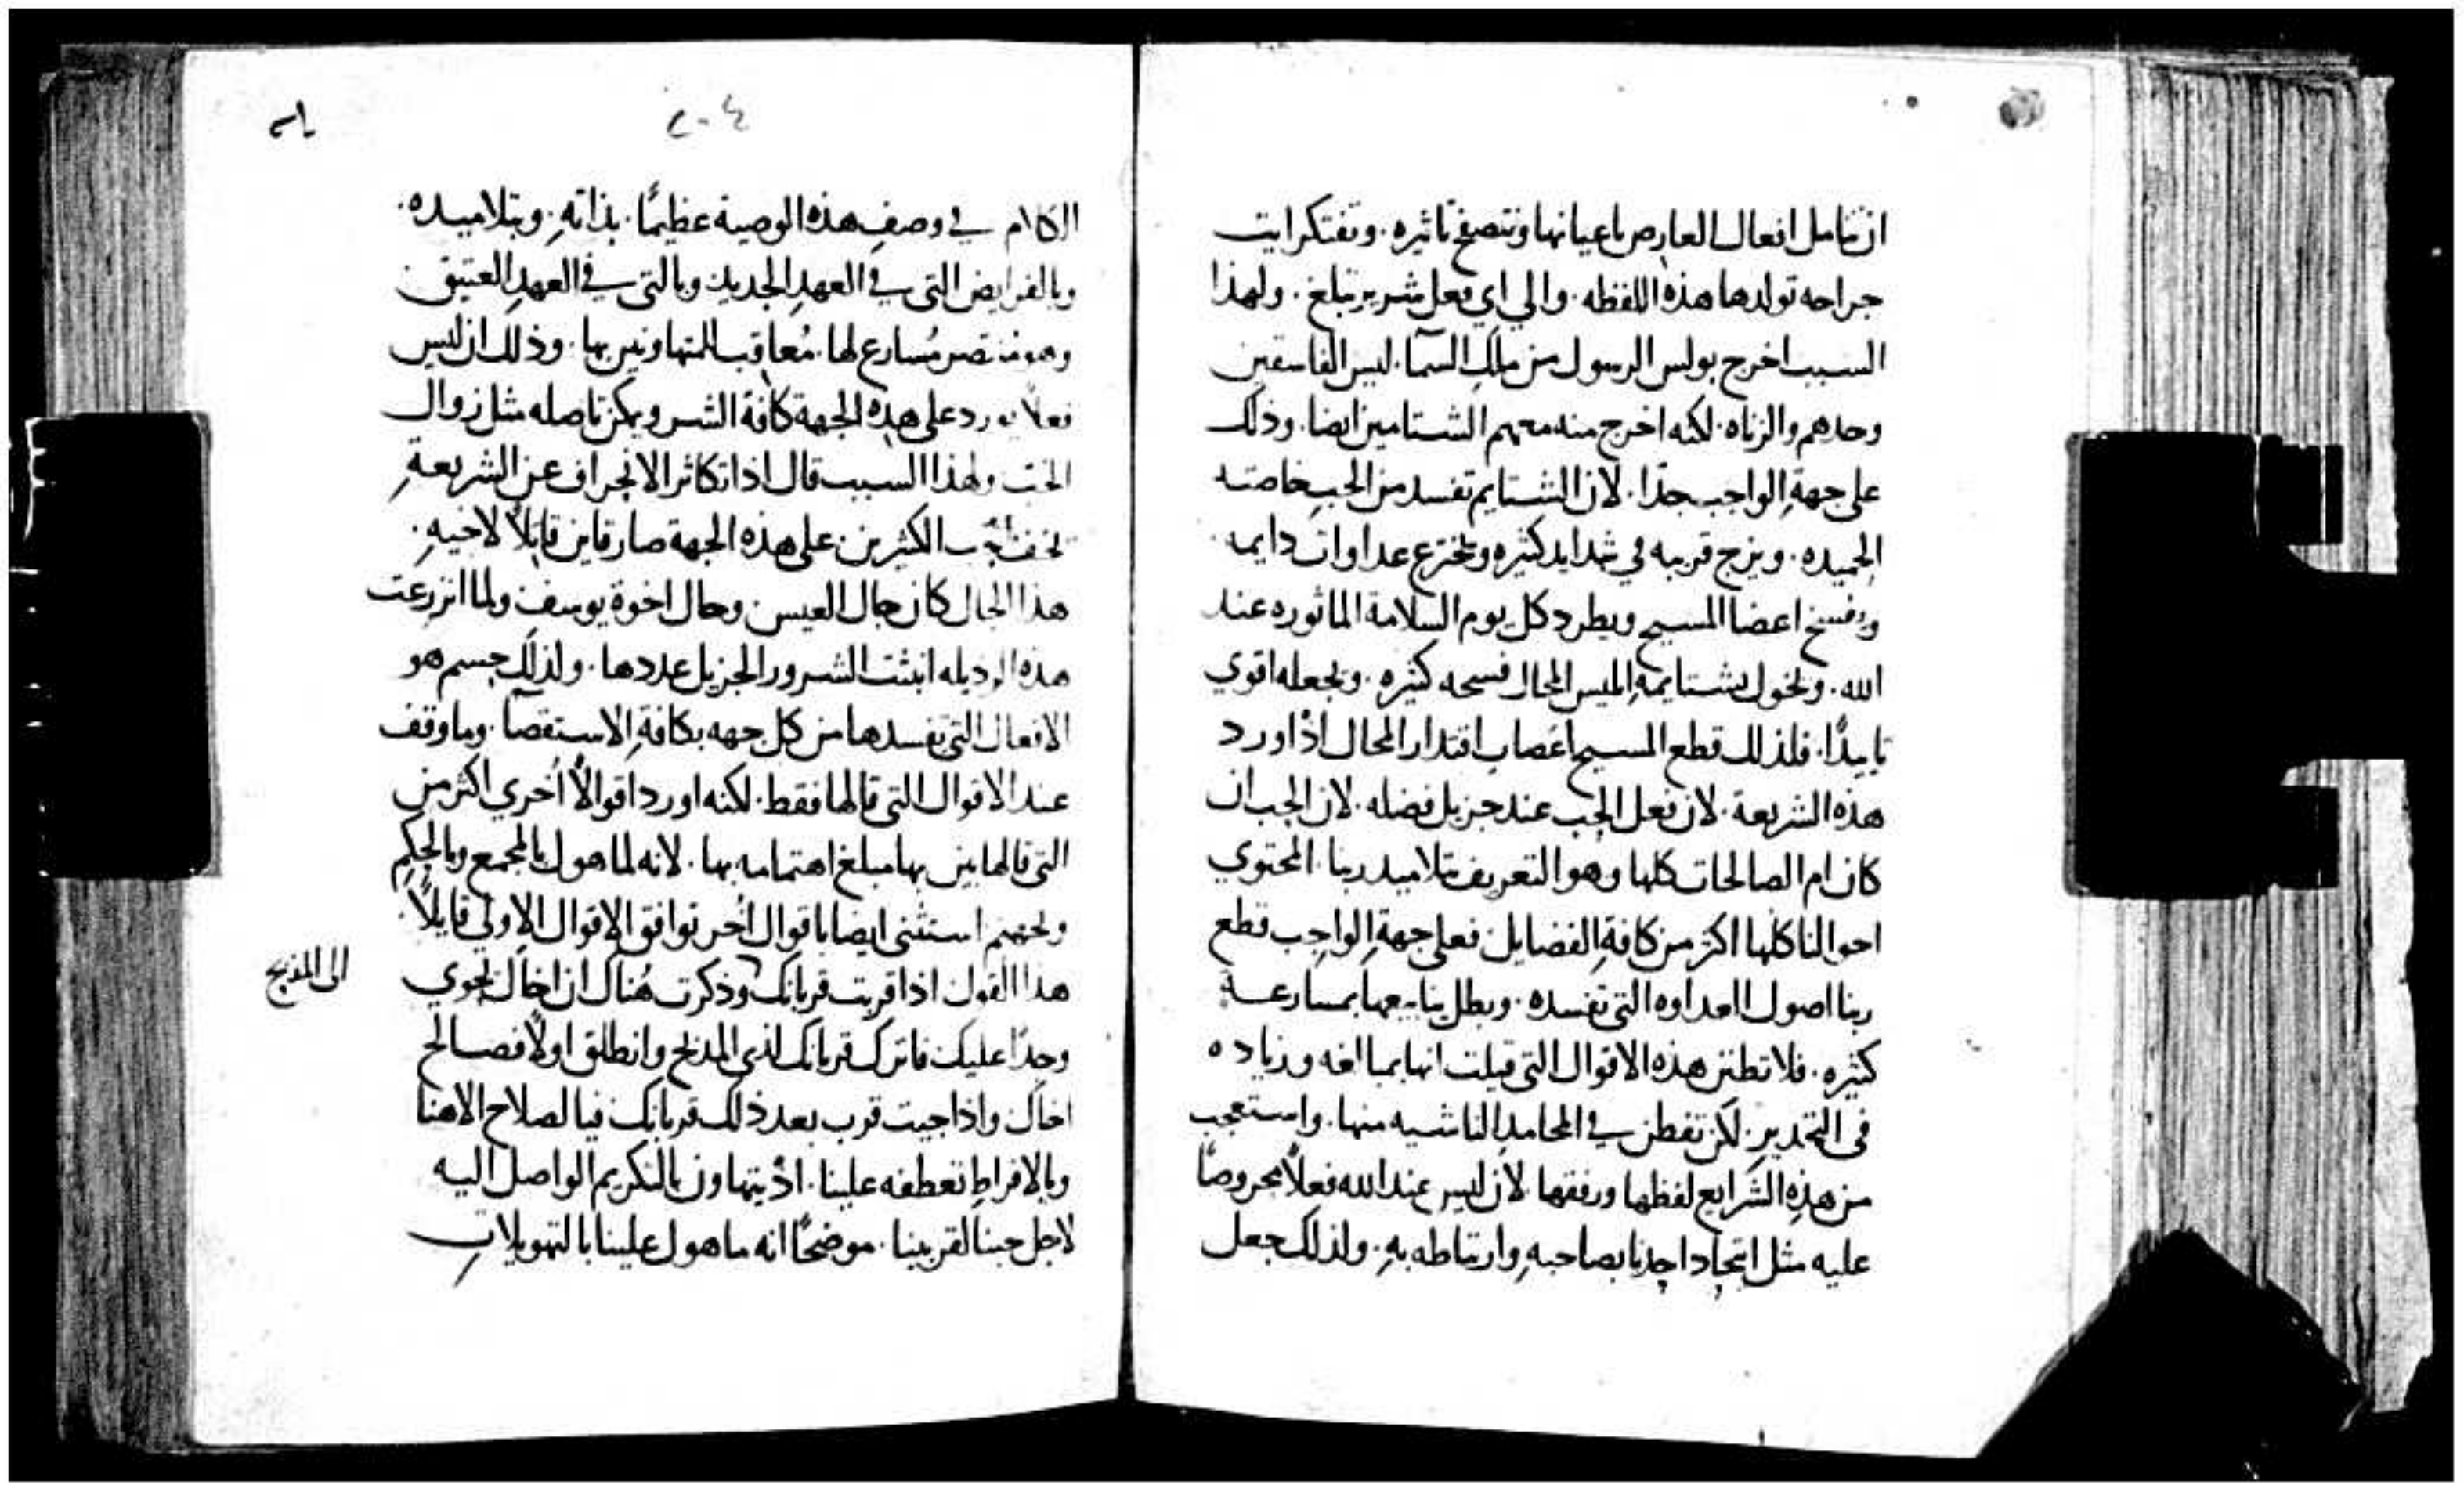 ان تتامل افعال العارض باعيانها وتتصفح تاثيره. وتفتكر ايت
جراحه تولدها هذه اللفظه. والي اي فعل شرير تبلغ. ولهذا
السبب اخرج بولس الرسول من ملك السما. ليس الفاسقين
وحدهم والزناه. لكنه اخرج منه معهم الشتامين ايضا. وذلك
علي جهةِ الواجب جدًا. لان الشتايم تفسد من الحب خاصته
الحميده. ويزج قريبه في شدايد كثيره وتخترع عداوات دايمه.
ويفسخ اعضا المسيح ويطرد كل يوم السلامة الماثوره عند
الله. وتخول بشتايمهِ ابليس المحال فسحه كثيره. وتجعله اقوي
تاييدًا. فلذلك قطع المسيح اعصاب اقتدار المحال اذ اورد
هذه الشريعة. لان فعل الحب عند جزيل فضله. لان الحب ان
كان ام الصالحات كلها وهو التعريف بتلاميد ربنا. المحتوي
احوالنا كلها اكثر من كافةِ الفضايل. فعلي جهةِ الواجب قطع
ربنا اصول العداوه التي تفسده. وبطل ينابيعها بمسارعة
كثيره. فلا تظنن هذه الاقوال التي قيلت انها بمبالغه وزياده
في التحديد. لكن تفطن في المحامد الناشيه منها. واستعجب
من هذهِ الشرايع لفظها ورفقها. لان ليس عند الله فعلاً محروصًا
عليه مثل اتحاد احدنا بصاحبهِ وارتباطه بهِ. ولذلك جعل
٢٠٤
الكلام في وصفِ هذه الوصية عظيمًا. بذاتهِ. وبتلاميده.
وبالفرايض التي في العهدِ الجديد وبالتي في العهدِ العتيق
وهو منتصر مُسارع لها. مُعاقب المتهاونين بها. وذلك ان ليس
فعلاً يورد علي هذه الجهة كافة الشر ويمكن تاصله مثل زوال
الحب ولهذا السبب قال اذا تكاثر الانحراف عن الشريعةِ
حب الكثيرين. علي هذه الجهة صار قاين قاتلاً لاخيهِ.
هذا الحال كان حال العيس وحال اخوة يوسف ولما انزرعت
هذه الرديله انبثت الشرور الجزيل عددها. ولذلك حسم هو
الافعال التي تفسدها من كل جهه بكافةِ الاستقصآ. وما وقف
عند الاقوال التي قالها فقط. لكنه اورد اقوالاً اُخري اكثر من
التي قالها بين بها مبلغ اهتمامه بها. لانه لما هول بالمجمع وبالحكم
وبجهنم استثني ايضا باقوال اُخر توافق الاقوال الاولي قايلاً.
هذا القول اذا قربت قربانك وذكرت هُناك ان اخاك يحوي
الي المذبح
وجدًا عليك فاترك قربانك لذي المذبح وانطلق اولاً فصالح
اخاك واذا جيت قرب بعد ذلك قربانك فيا لصلاح الاهنا
وبالافراطِ تعطفه علينا. اذ يتهاون بالتكريم الواصل اليه
لاجل حبنا لقريبنا. موضحًا انه ما هول علينا بالتهويلاتِ